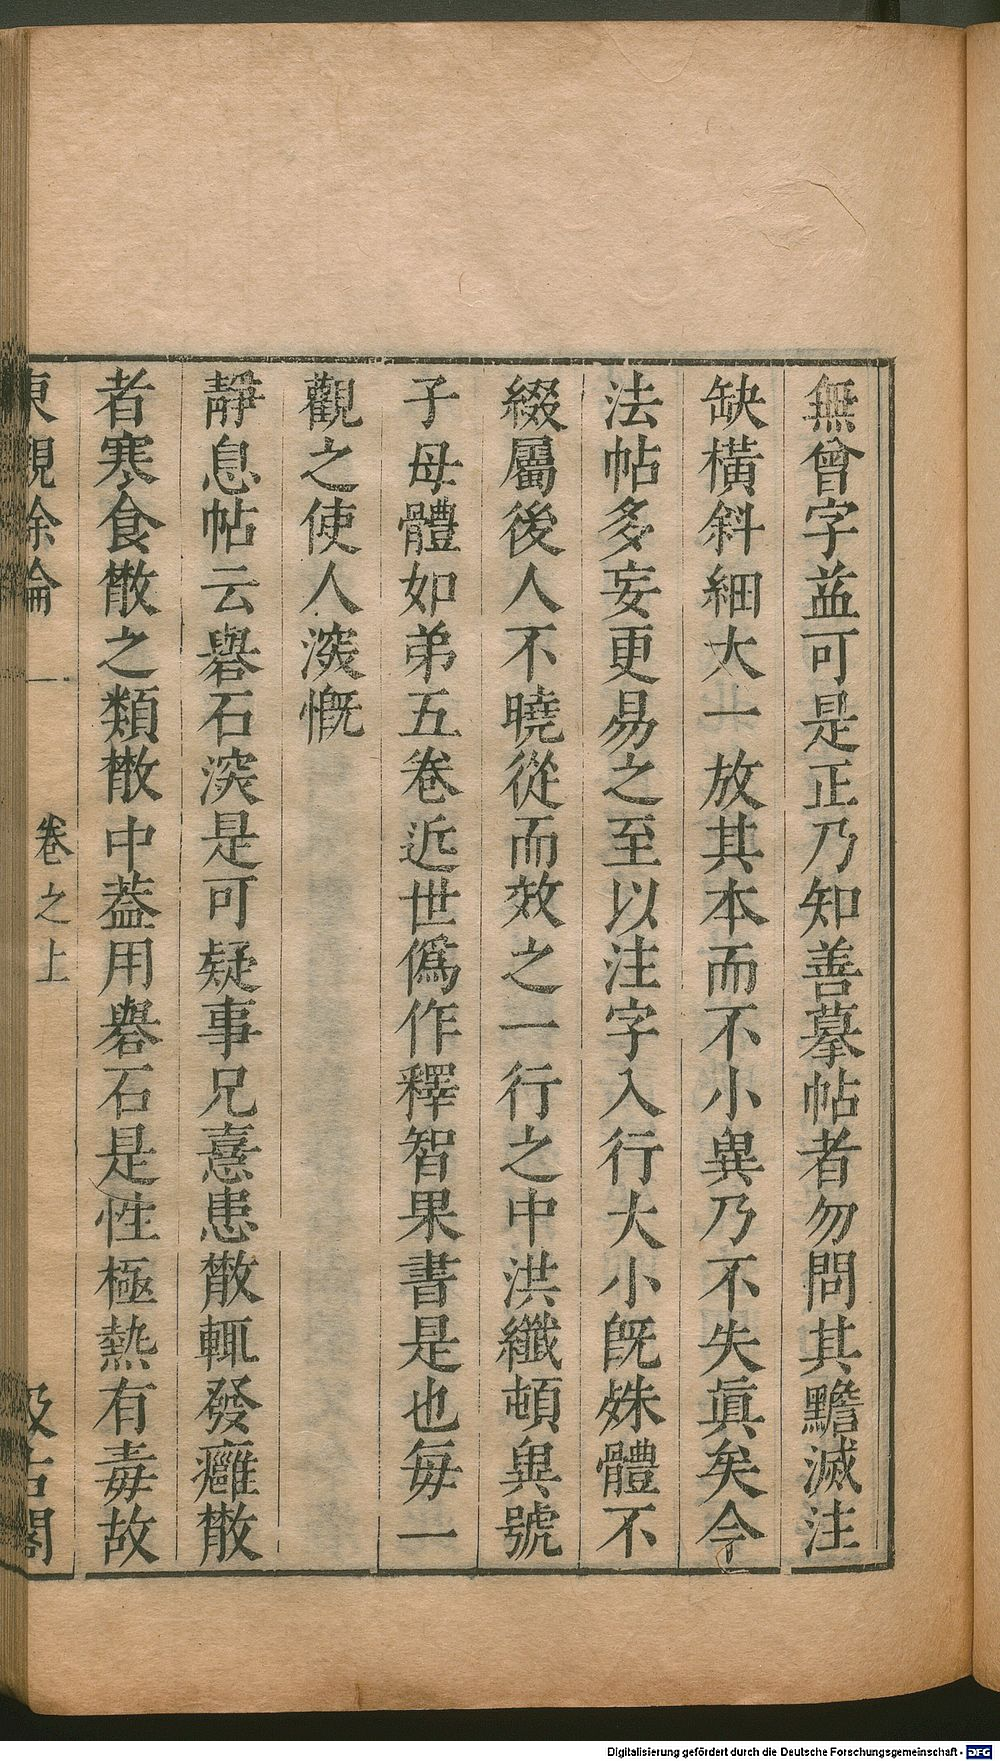 無曾字葢可是正乃知善摹帖者勿問其黵滅注
缺橫斜細大一放其本而不小異乃不失眞矣今
法帖多妄更易之至以注字入行大小旣殊體不
綴屬後人不曉從而效之一行之中洪纖頓異號
子母體如弟五卷近世僞作釋智果書是也每一
觀之使人㴱慨
靜息帖云礜石㴱是可疑事兄憙患㪚輒發癰㪚
者寒食㪚之類㪚中葢用礜石是性極熱有毒故
東觀餘論 一 卷之上 汲古閣
Digitalisierung gefördert durch die Deutsche Forschungsgemeinschaft - DFG